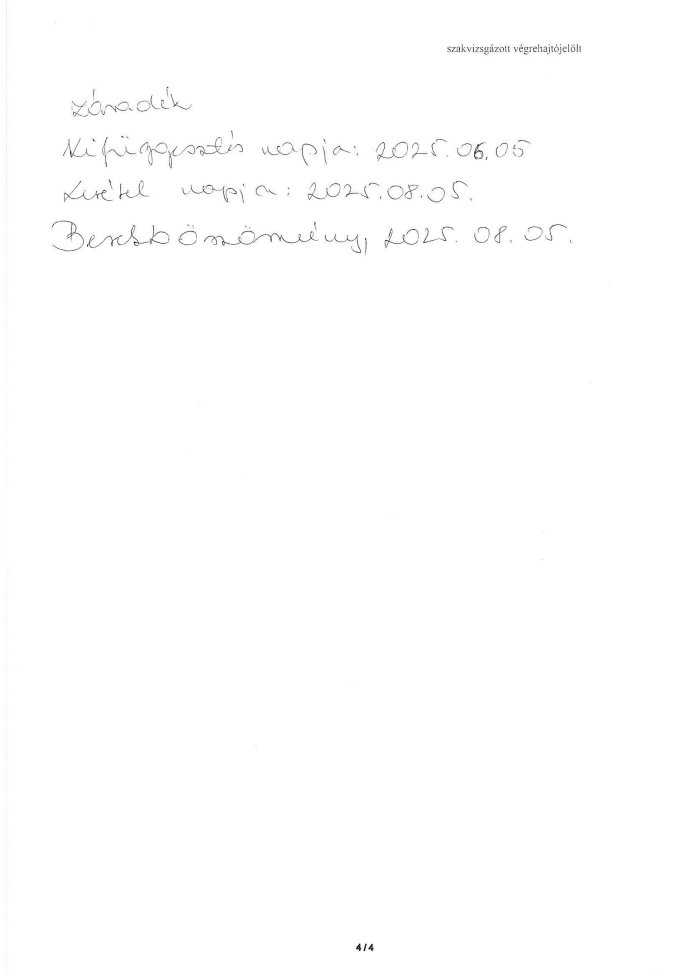 szakvizsgázott végrehajtójelölt
Záradék
Kifüggesztés napja: 2025.06.05
Levétel napja: 2025.08.05.
Berekböszörmény, 2025. 08. 05.
4 / 4